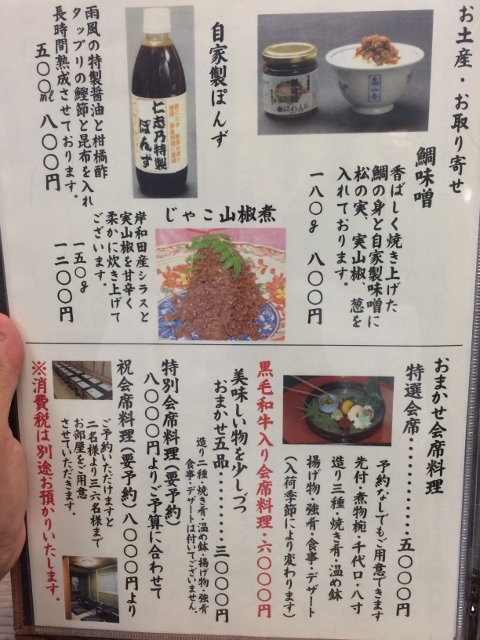 お土産・お取り寄せ
鯛味噌
香ばしく焼き上げた
鯛の身と自家製味噌に
松の実、実山椒、葱を
入れております。
一八〇g 八〇〇円
自家製ぽんず
仁志乃特製
ぽんず
雨風の特製醤油と柑橘酢
タップリの鰹節と昆布を入れ
長時間熟成させております。
五〇〇ml 八〇〇円
じゃこ山椒煮
岸和田産シラスと
実山椒を甘辛く
柔かに炊き上げて
ございます。
一五〇g
一二〇〇円
おまかせ会席料理
特選会席・・・・・・・・・五〇〇〇円
予約なしでもご用意できます
先付・煮物椀・千代口・八寸
造り三種・焼き肴・温め鉢
揚げ物・強肴・食事・デザート
(入荷季節により変わります)
黒毛和牛入り会席料理・六〇〇〇円
美味しい物を少しづつ
おまかせ五品・・・・・・・・・三〇〇〇円
造り二種・焼き肴・温め鉢・揚げ物・強肴
食事・デザートは付いてございません。
特別会席料理(要予約)
八〇〇〇円よりご予算に合わせて
祝会席料理(要予約)八〇〇〇円より
ご予約いただけますと
二名様より三六名様まで
お部屋をご用意
させていただきます。
※消費税は別途お預かりいたします。